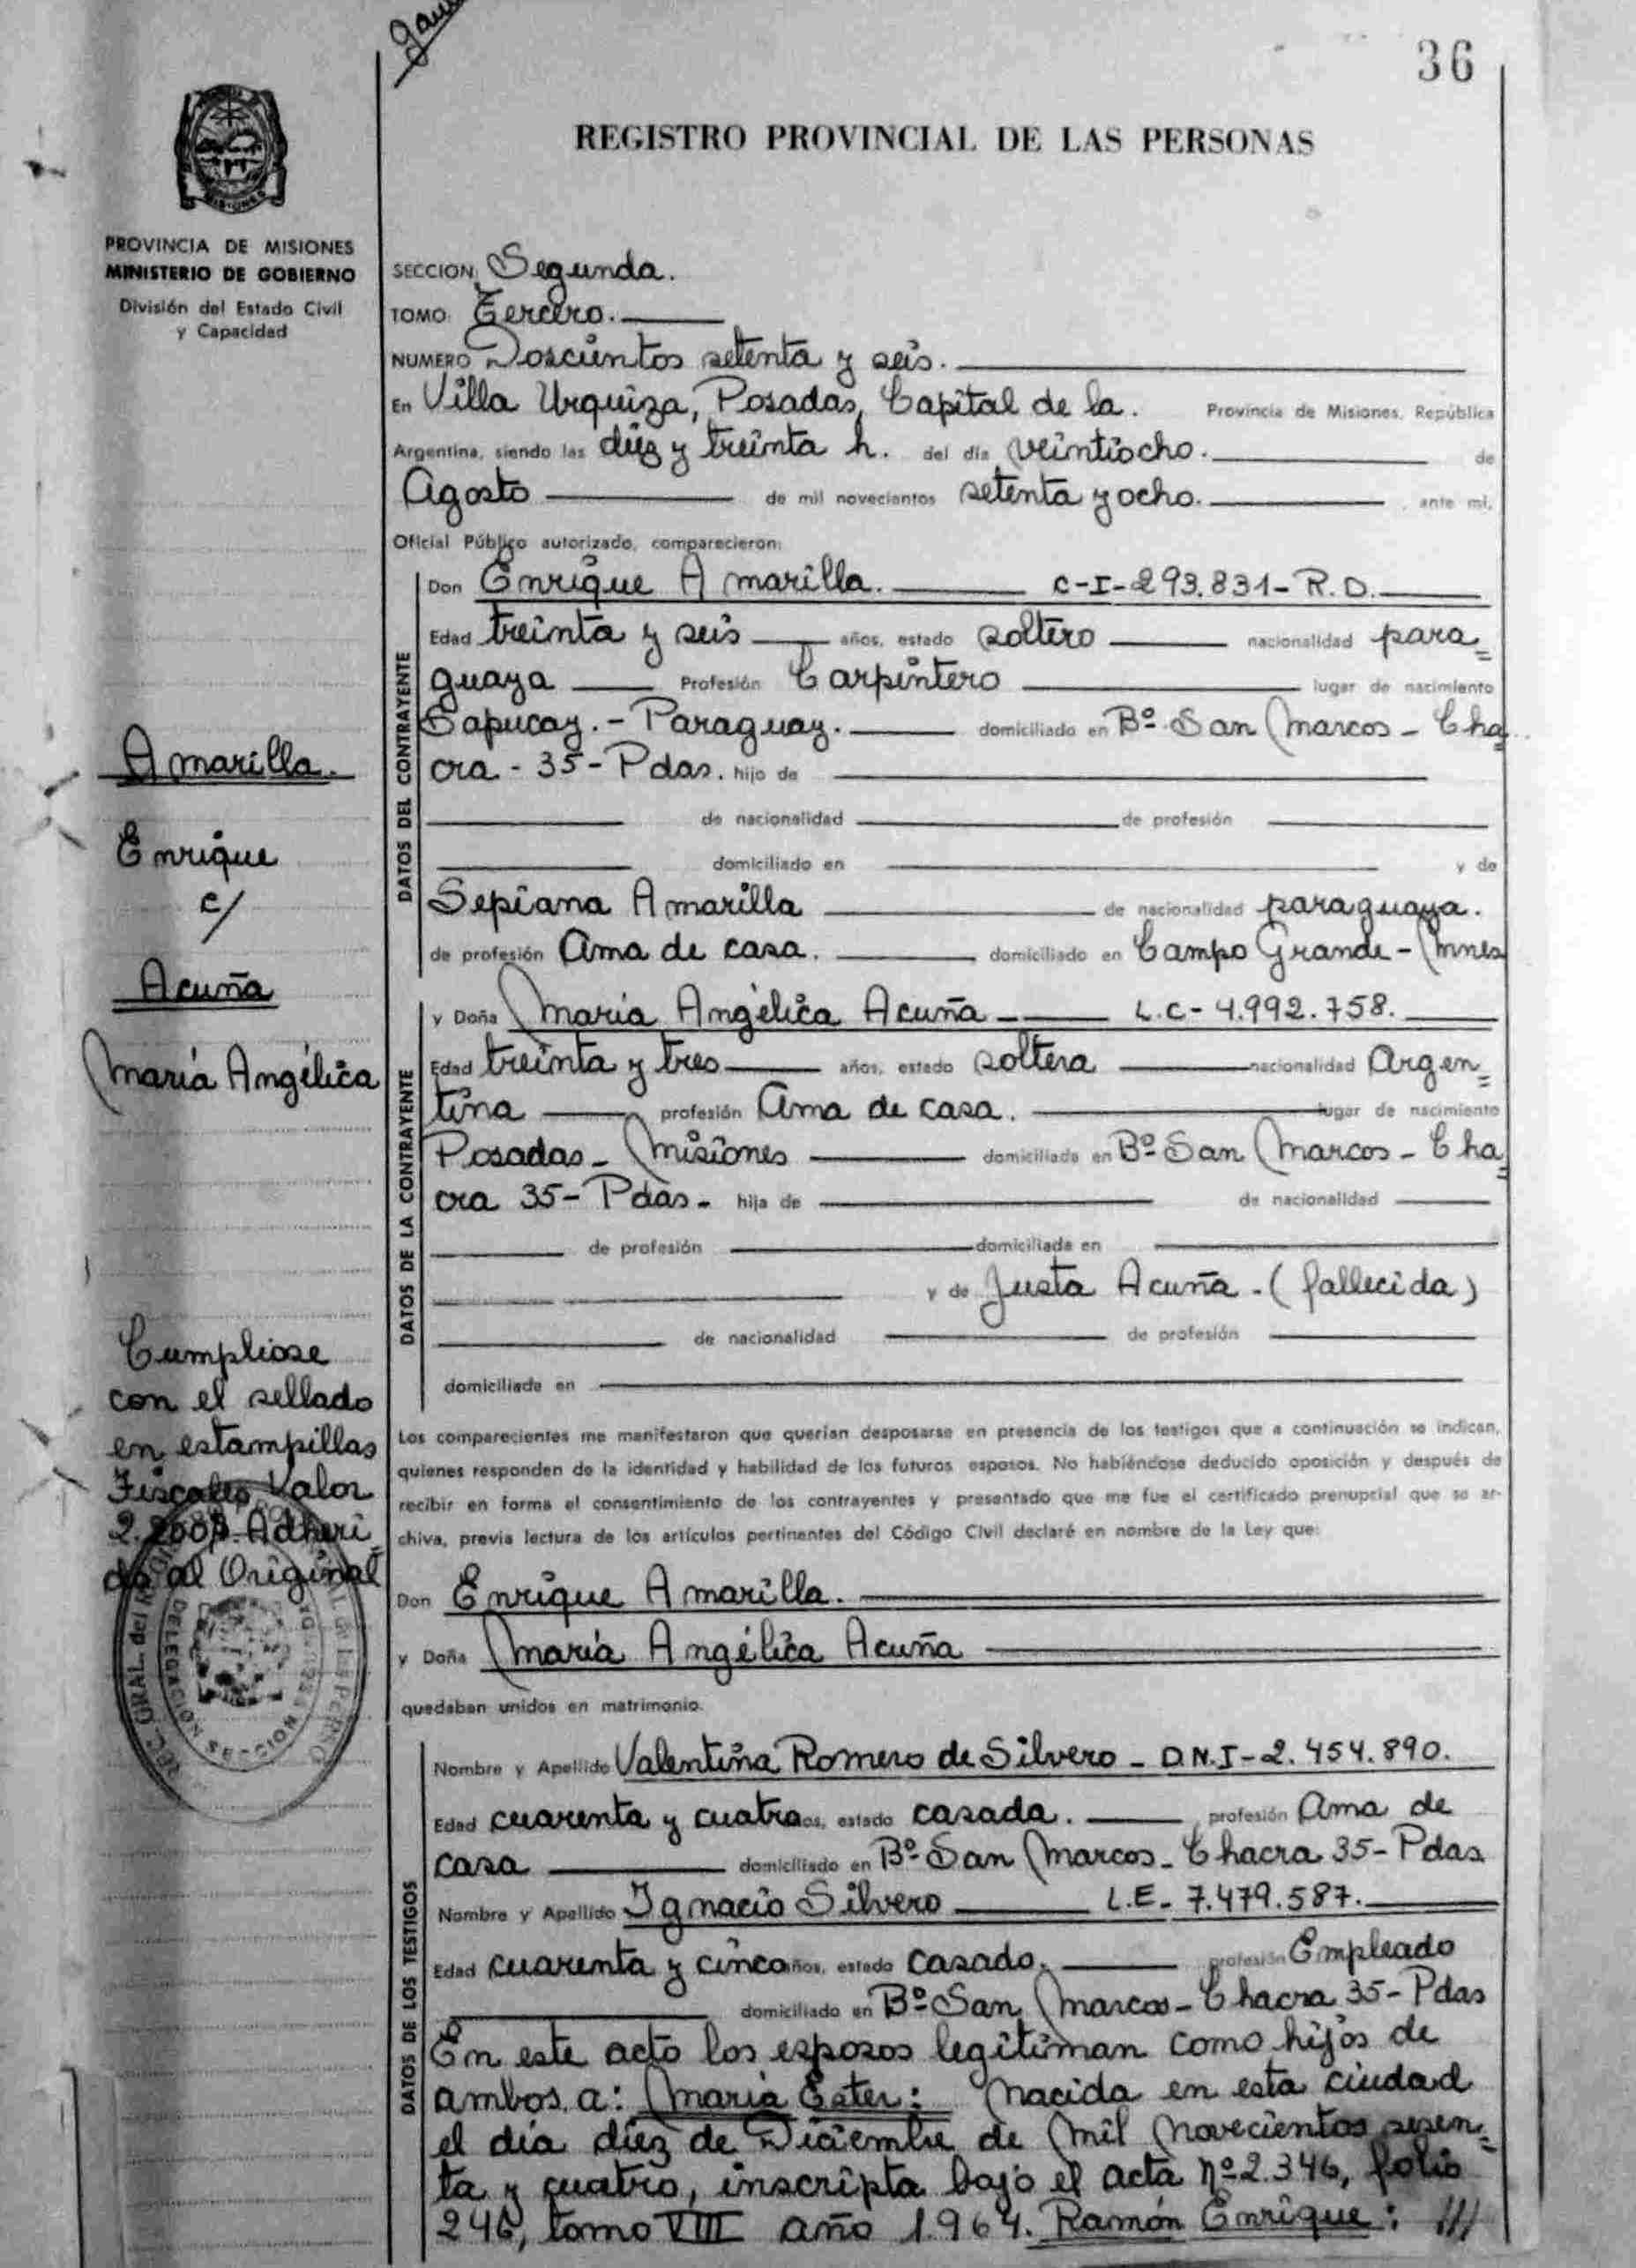 36
REGISTRO PROVINCIAL DE LAS PERSONAS
PROVINCIA DE MISIONES
MINISTERIO DE GOBIERNO
División del Estado Civil
y Capacidad
SECCION: Segunda.
TOMO: Tercero.
NUMERO Doscientos setenta y seis.
En Villa Urquiza, Posadas, Capital de la. Provincia de Misiones, República
Argentina, siendo las diez y treinta h. del día veintiocho. de
Agosto de mil novecientos setenta y ocho. , ante mi,
Oficial Público autorizado, comparecieron:
DATOS DEL CONTRAYENTE
Don Enrique Amarilla. C-I-293.831-R.D.
Edad treinta y seis años, estado soltero nacionalidad para=
guaya Profesión Carpintero lugar de nacimiento
Sapucay.- Paraguay. domiciliado en Bº San Marcos - Cha=
cra - 35 - Pdas. hijo de
de nacionalidad de profesión
domiciliado en y de
Sepiana Amarilla de nacionalidad paraguaya.
de profesión Ama de casa. domiciliado en Campo Grande - Mnes
DATOS DE LA CONTRAYENTE
y Doña María Angélica Acuña L.C- 4.992.758.
Edad treinta y tres años, estado soltera nacionalidad Argen=
tina profesión Ama de casa. lugar de nacimiento
Posadas - Misiones domiciliada en Bº San Marcos - Cha=
cra 35 - Pdas - hija de de nacionalidad
de profesión domiciliada en
y de Justa Acuña - (fallecida)
de nacionalidad de profesión
domiciliada en
Los comparecientes me manifestaron que querían desposarse en presencia de los testigos que a continuación se indican,
quienes responden de la identidad y habilidad de los futuros esposos. No habiéndose deducido oposición y después de
recibir en forma el consentimiento de los contrayentes y presentado que me fue el certificado prenupcial que se ar-
chiva, previa lectura de los artículos pertinentes del Código Civil declaré en nombre de la Ley que:
Don Enrique Amarilla.
y Doña María Angélica Acuña
quedaban unidos en matrimonio.
DATOS DE LOS TESTIGOS
Nombre y Apellido Valentina Romero de Silvero - D.N.I - 2.454.890.
Edad cuarenta y cuatro años, estado casada. profesión Ama de
casa domiciliado en Bº San Marcos - Chacra 35 - Pdas
Nombre y Apellido Ignacio Silvero L.E. 7.479.587.
Edad cuarenta y cinco años, estado casado. profesión Empleado
domiciliado en Bº San Marcos - Chacra 35 - Pdas
En este acto los esposos legitiman como hijos de
ambos a: María Ester: Nacida en esta ciudad
el día diez de Diciembre de Mil Novecientos sesen=
ta y cuatro, inscripta bajo el acta Nº 2.346, folio
246, tomo VIII año 1.964. Ramón Enrique: ///
Amarilla.
Enrique
c/
Acuña
María Angélica
Cumpliose
con el sellado
en estampillas
Fiscales Valor
2.200$ Adheri
do al Original
DELEGACION SECCION